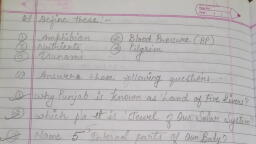 Q) Define these:-
① Amphibian ④ Blood Pressure (BP)
② Nutrients ⑤ Pilgrim
③ Tsunami
Answers these following questions:-
① Why Punjab is known as Land of Five Rivers?
② which is Jewel of Our Solar System?
③ Name 5 Internal Parts of Our Body?